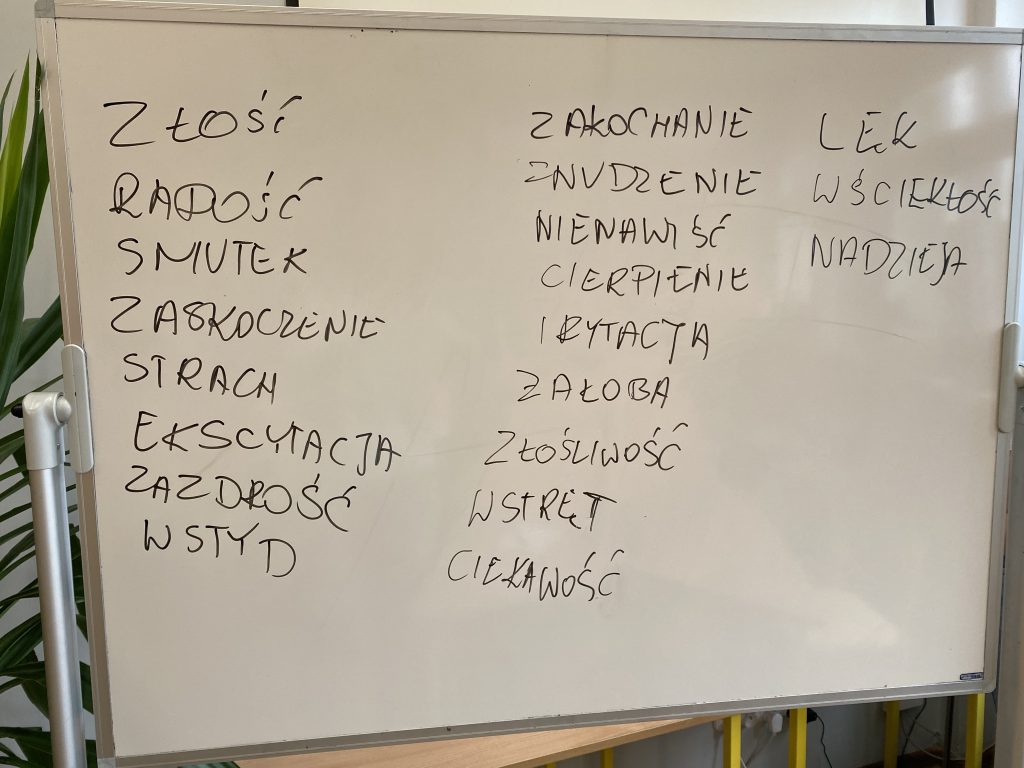 ZŁOŚĆ
RADOŚĆ
SMUTEK
ZASKOCZENIE
STRACH
EKSCYTACJA
ZAZDROŚĆ
WSTYD
ZAKOCHANIE
ZNUDZENIE
NIENAWIŚĆ
CIERPIENIE
IRYTACJA
ZAŁOBA
ZŁOŚLIWOŚĆ
WSTRĘT
CIEKAWOŚĆ
LĘK
WŚCIEKŁOŚĆ
NADZIEJA